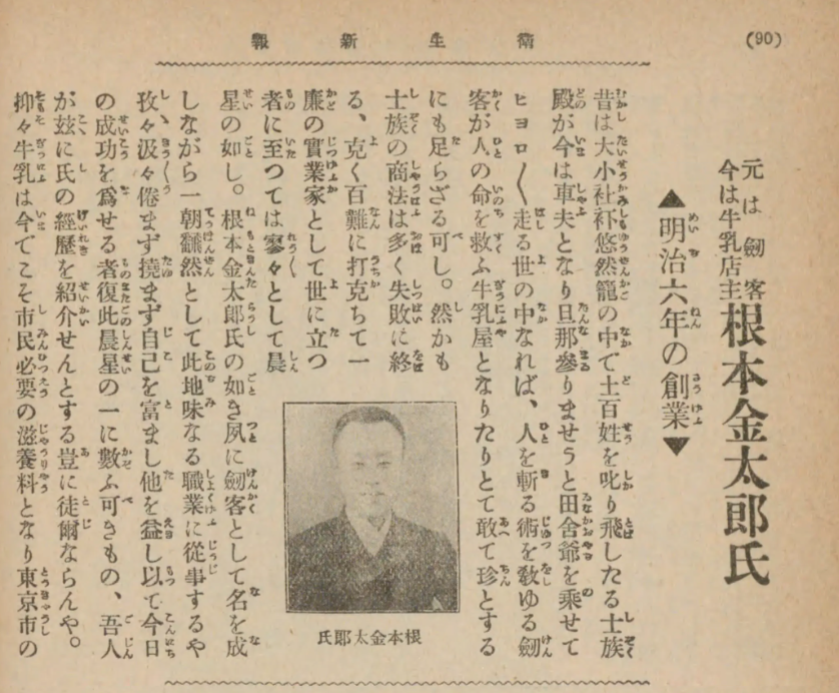 (90)
衛生新報
元は劔客
今は牛乳店主
根本金太郎氏
▲明治六年の創業▼
昔は大小社裃悠然籠の中で土百姓を叱り飛したる士族
殿が今は車夫となり旦那參りませうと田舍爺を乘せて
ヒヨロ〱走る世の中なれば、人を斬る術を敎ゆる劔
客が人の命を救ふ牛乳屋となりたりとて敢て珍とする
にも足らざる可し。然かも
士族の商法は多く失敗に終
る、克く百難に打克ちて一
廉の實業家として世に立つ
者に至つては寥々として晨
星の如し。根本金太郎氏の如き夙に劔客として名を成
しながら一朝飜然として此地味なる職業に從事するや
孜々汲々倦まず撓まず自己を富まし他を益し以て今日
の成功を爲せる者復此晨星の一に數ふ可きもの、吾人
が玆に氏の經歷を紹介せんとする豈に徒爾ならんや。
抑々牛乳は今でこそ市民必要の滋養料となり東京市の
根本金太郎氏